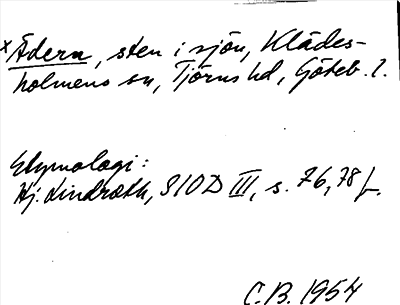 ×Ådern, sten i sjön, Klädes-
holmens sn, Tjörns hd, Göteb. l.
Etymologi:
Hj. Lindroth, SIOD III, s. 76, 78 f.
C.B. 1954